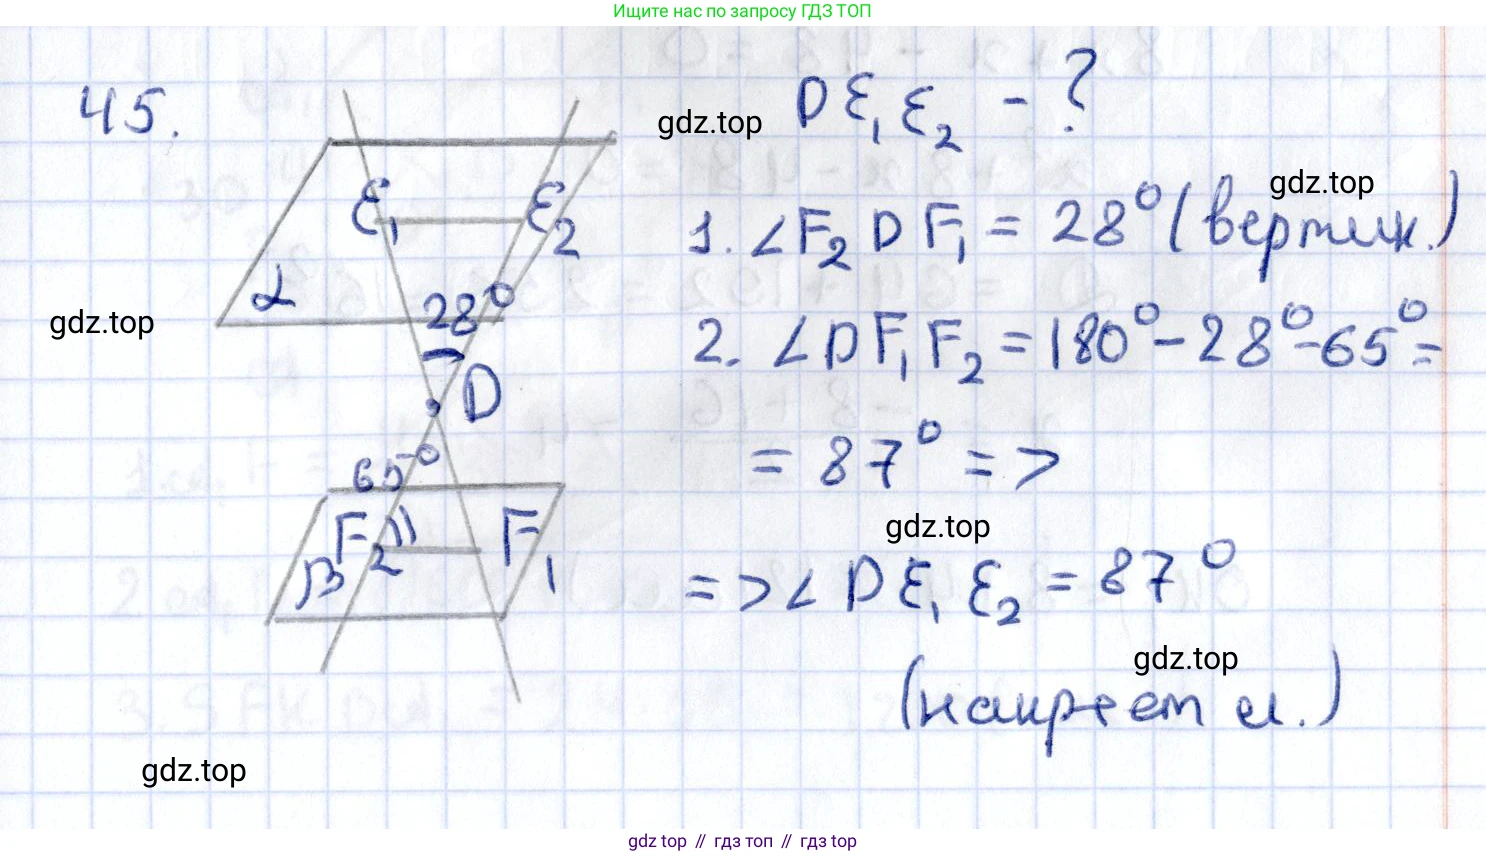 Ищите нас по запросу ГДЗ ТОП
45.
DE₁E₂ - ?
gdz.top
gdz.top
E₁ E₂
1. ∠F₂DF₁ = 28° (вертик.)
α
28°
gdz.top
2. ∠DF₁F₂ = 180° - 28° - 65° =
D
= 87° =>
65°
gdz.top
F₂ F₁
β
=> ∠DE₁E₂ = 87°
gdz.top
(накрест л.)
gdz.top
gdz top // гдз топ // гдз top